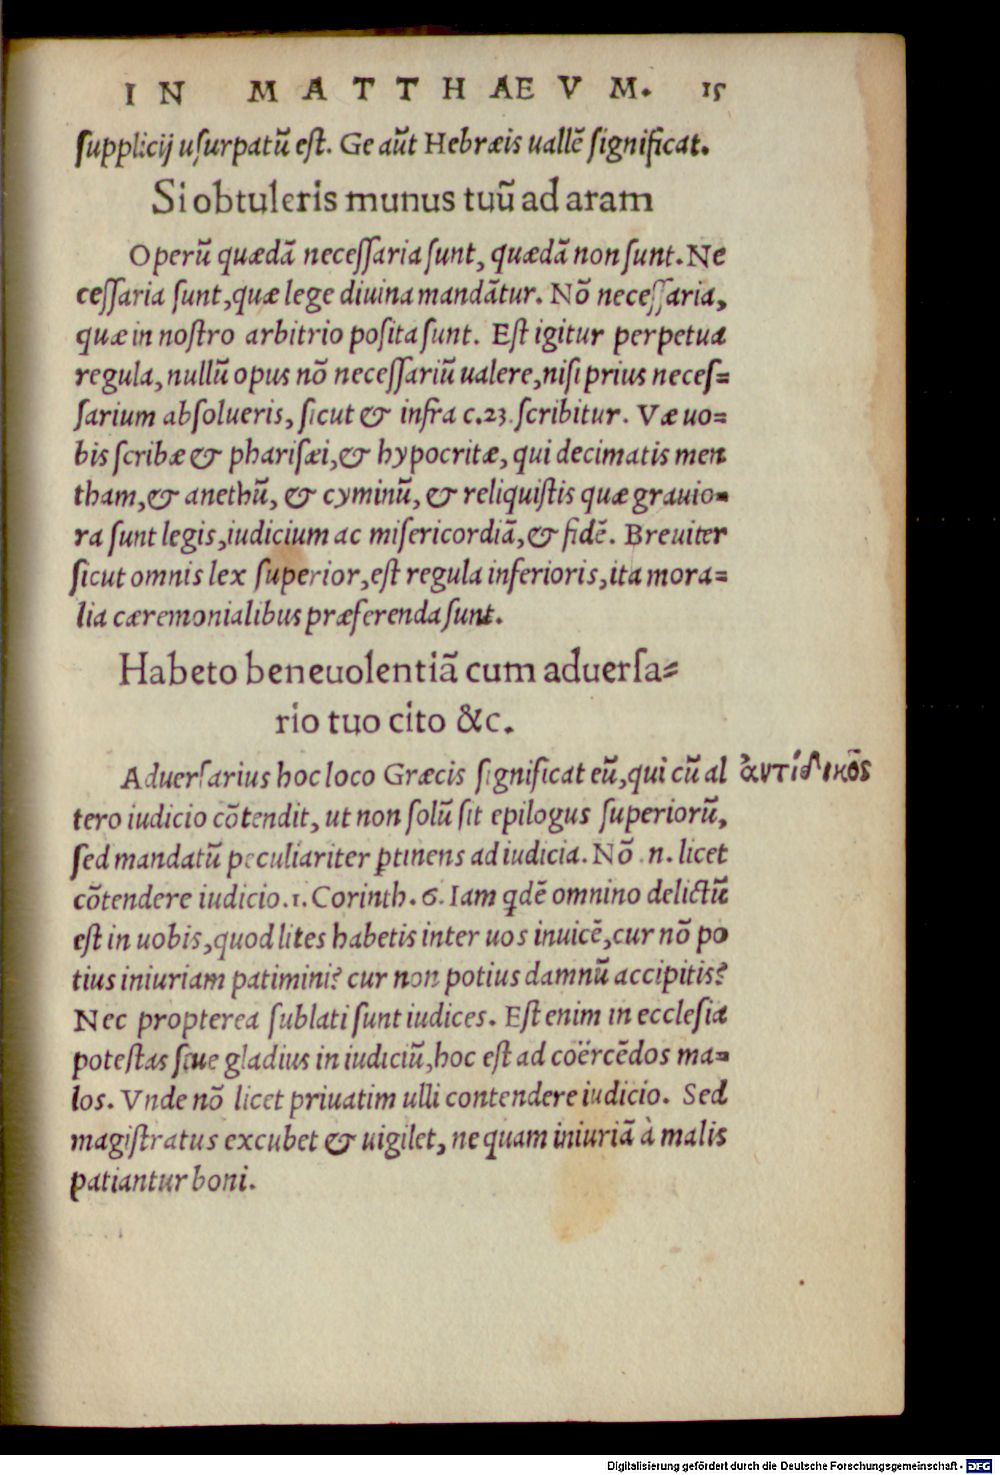 IN MATTHAEVM. 15
supplicij usurpatũ est. Ge aũt Hebræis uallẽ significat.
Si obtuleris munus tuũ ad aram
Operũ quædã necessaria sunt, quædã non sunt. Ne
cessaria sunt, quæ lege diuina mandãtur. Nõ necessaria,
quæ in nostro arbitrio posita sunt. Est igitur perpetua
regula, nullũ opus nõ necessariũ ualere, nisi prius neces=
sarium absolueris, sicut & infra c.23. scribitur. Væ uo=
bis scribæ & pharisæi, & hypocritæ, qui decimatis men
tham, & anethũ, & cyminũ, & reliquistis quæ grauio=
ra sunt legis, iudicium ac misericordiã, & fidẽ. Breuiter
sicut omnis lex superior, est regula inferioris, ita mora=
lia cæremonialibus præferenda sunt.
Habeto beneuolentiã cum aduersa=
rio tuo cito &c.
Aduersarius hoc loco Græcis significat eũ, qui cũ al
ἀντίδικος
tero iudicio cõtendit, ut non solũ sit epilogus superiorũ,
sed mandatũ peculiariter ꝑtinens ad iudicia. Nõ .n. licet
cõtendere iudicio. 1. Corinth. 6. Iam qdẽ omnino delictũ
est in uobis, quod lites habetis inter uos inuicẽ, cur nõ po
tius iniuriam patimini? cur non potius damnũ accipitis?
Nec propterea sublati sunt iudices. Est enim in ecclesia
potestas siue gladius in iudiciũ, hoc est ad coërcẽdos ma=
los. Vnde nõ licet priuatim ulli contendere iudicio. Sed
magistratus excubet & uigilet, ne quam iniuriã à malis
patiantur boni.
Digitalisierung gefördert durch die Deutsche Forschungsgemeinschaft - DFG